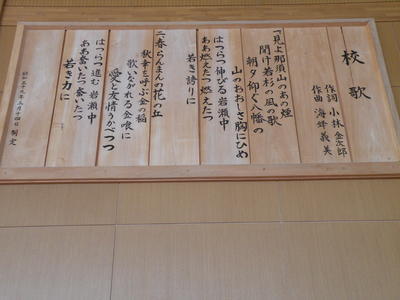 校歌
作詞 小林金次郎
作曲 海鋒義美
一、見よ那須山のあの煙
聞け若杉の風の歌
朝夕仰ぐ八幡の
山のおおしさ胸にひめ
はつらつ伸びる岩瀬中
ああ燃えたつ燃えたつ
若き誇りに
二、春らんまんの花の丘
秋幸を呼ぶ金の稲
歌いながれる金喰に
愛と友情うかべつつ
はつらつ進む岩瀬中
ああ奮いたつ奮いたつ
若き力に
昭和五十九年三月十四日 制定